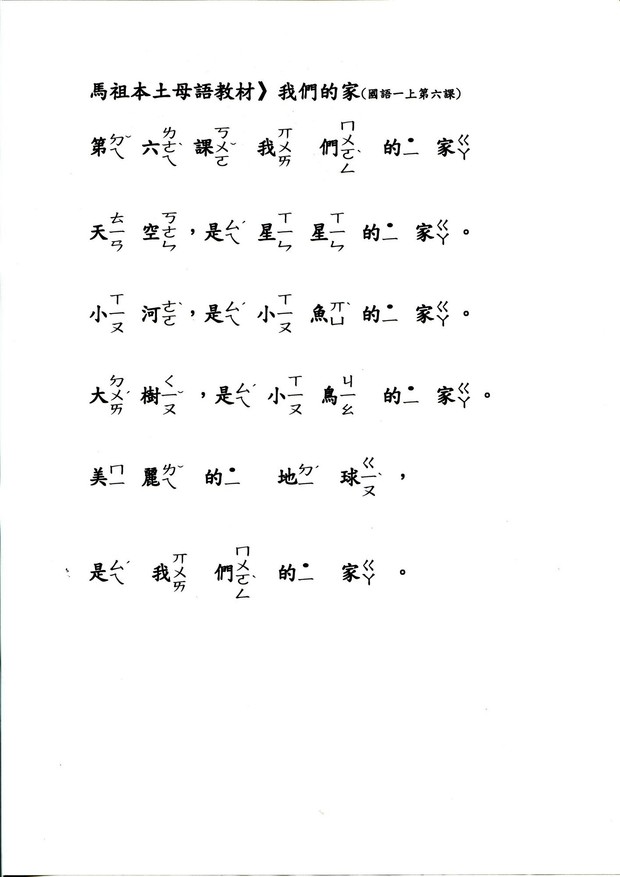 馬祖本土母語教材》我們的家(國語一上第六課)
第ㄉㄟˇ 六ㄌㄜㄟˋ 課ㄎㄨㄛˇ 我ㄫㄨㄞ 們ㄇㄨㄛㄥˋ 的˙ㄧ 家ㄍㄚ
天ㄊㄧㄢ 空ㄎㄜㄣ，是ㄙㄟˊ 星ㄒㄧㄣ 星ㄒㄧㄣ 的˙ㄧ 家ㄍㄚ。
小ㄒㄧㄡ 河ㄜㄛˋ，是ㄙㄟˊ 小ㄒㄧㄡ 魚ㄫㄩˋ 的˙ㄧ 家ㄍㄚ。
大ㄉㄨㄞˊ 樹ㄑㄧㄡˇ，是ㄙㄟˊ 小ㄒㄧㄡ 鳥ㄐㄧㄠ 的˙ㄧ 家ㄍㄚ。
美ㄇㄧ 麗ㄌㄟˇ 的˙ㄧ 地ㄉㄧˊ 球ㄍㄧㄡˋ，
是ㄙㄟˊ 我ㄫㄨㄞ 們ㄇㄨㄛㄥˋ 的˙ㄧ 家ㄍㄚ。